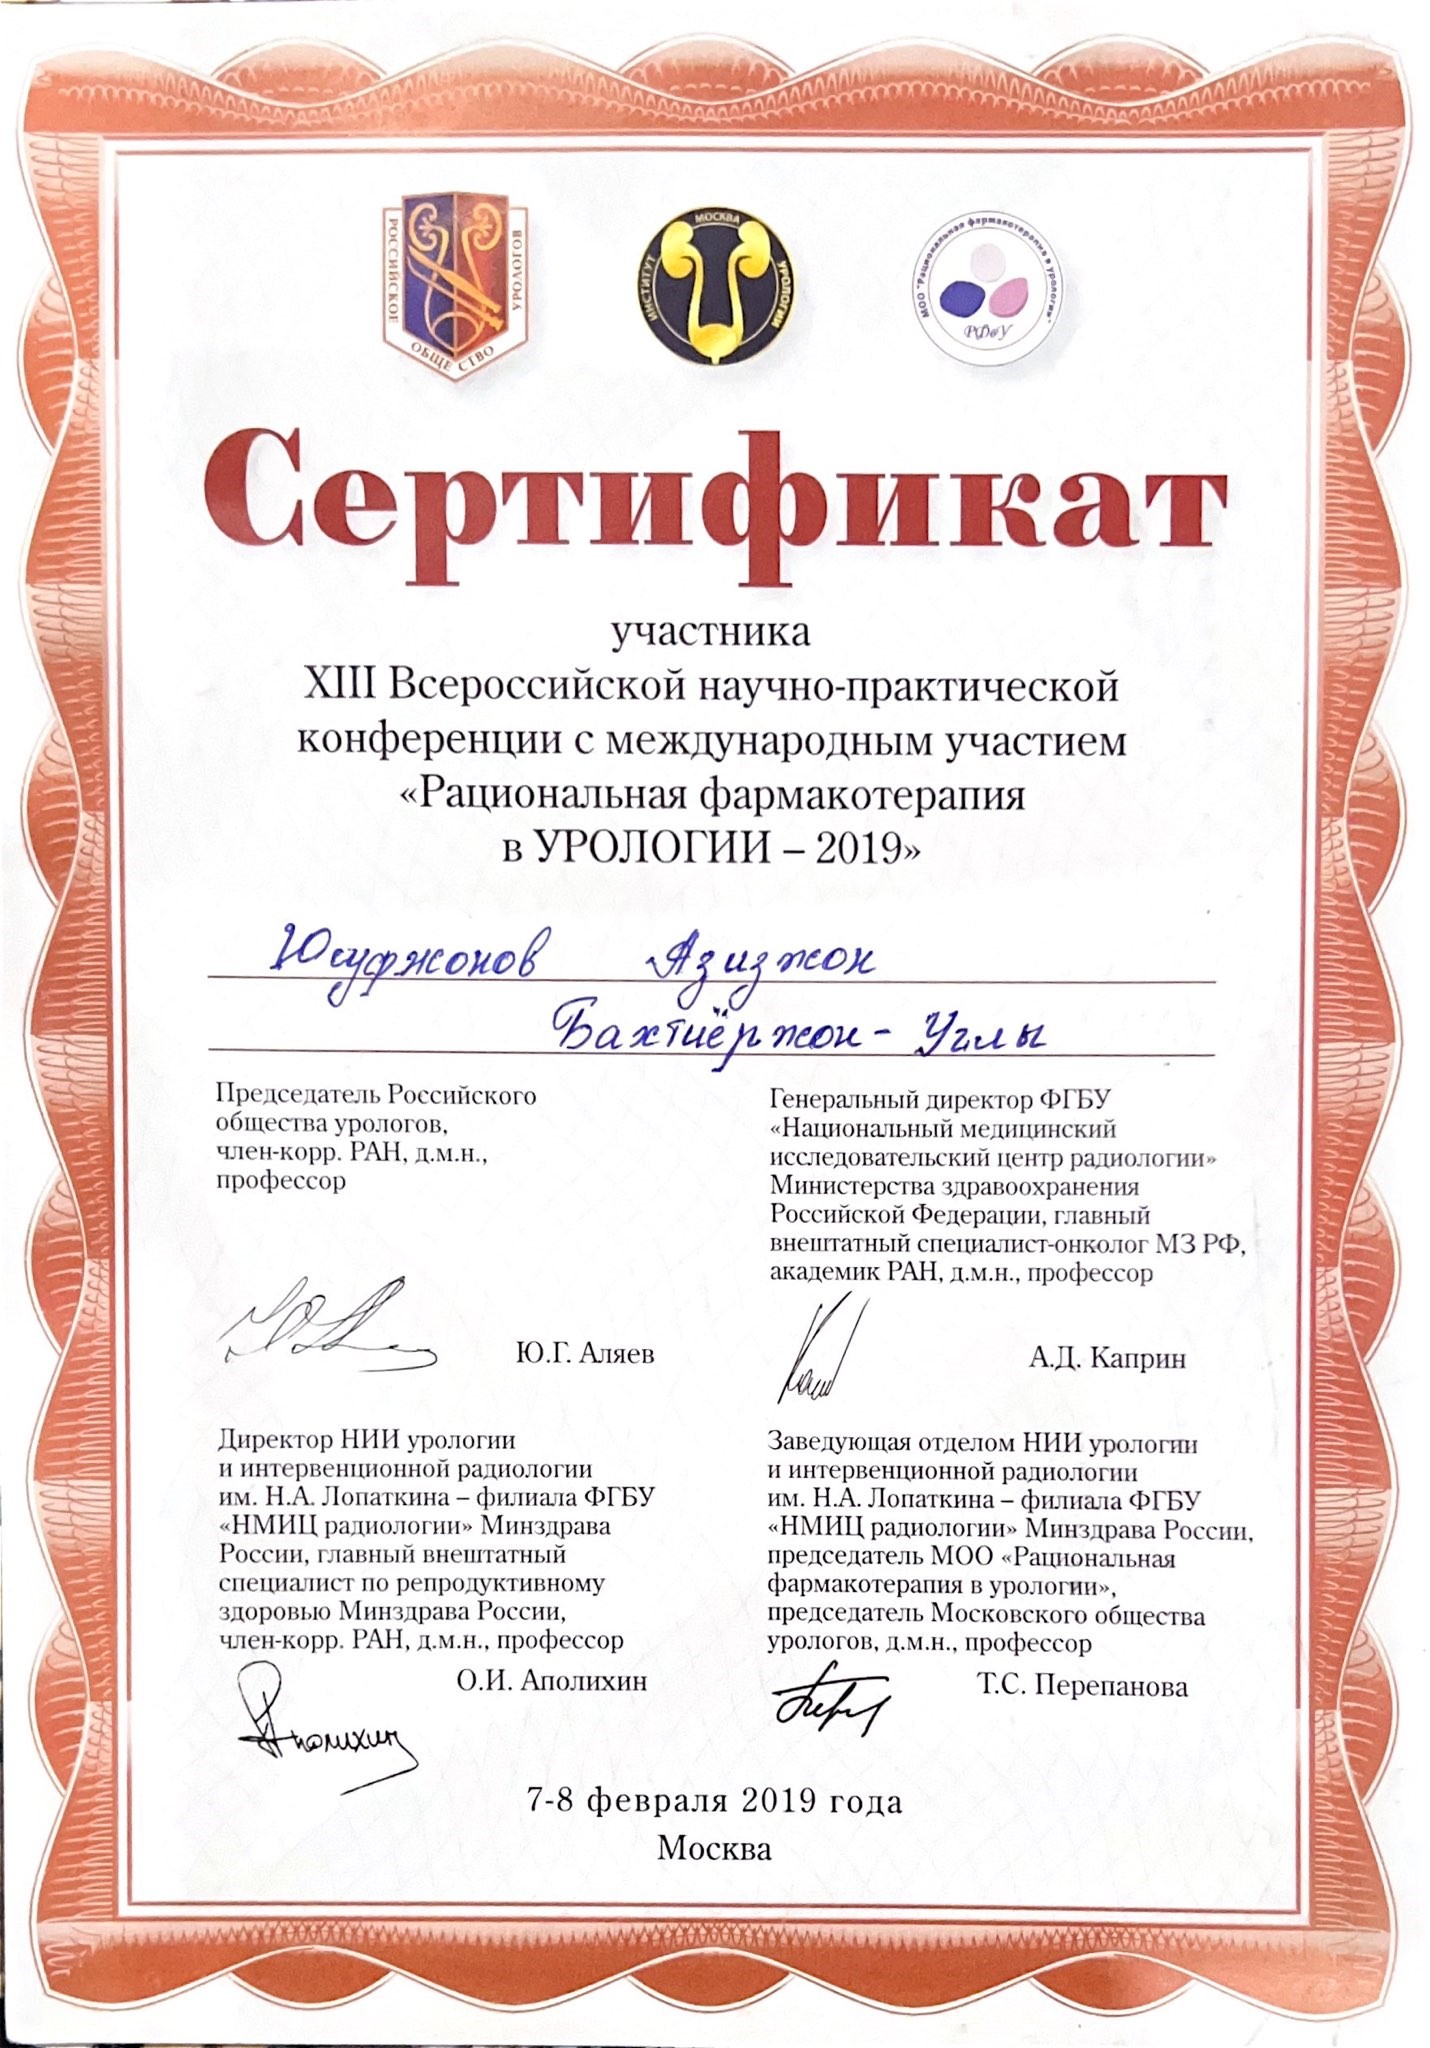 РОССИЙСКОЕ ОБЩЕСТВО УРОЛОГОВ
МОСКВА ИНСТИТУТ УРОЛОГИИ
МОО "Рациональная фармакотерапия в урологии"
РФвУ
Сертификат
участника
XIII Всероссийской научно-практической
конференции с международным участием
«Рациональная фармакотерапия
в УРОЛОГИИ – 2019»
Юсуфжонов Азизжон
Бахтиёржон - Углы
Председатель Российского
общества урологов,
член-корр. РАН, д.м.н.,
профессор
Ю.Г. Аляев
Генеральный директор ФГБУ
«Национальный медицинский
исследовательский центр радиологии»
Министерства здравоохранения
Российской Федерации, главный
внештатный специалист-онколог МЗ РФ,
академик РАН, д.м.н., профессор
А.Д. Каприн
Директор НИИ урологии
и интервенционной радиологии
им. Н.А. Лопаткина – филиала ФГБУ
«НМИЦ радиологии» Минздрава
России, главный внештатный
специалист по репродуктивному
здоровью Минздрава России,
член-корр. РАН, д.м.н., профессор
О.И. Аполихин
Заведующая отделом НИИ урологии
и интервенционной радиологии
им. Н.А. Лопаткина – филиала ФГБУ
«НМИЦ радиологии» Минздрава России,
председатель МОО «Рациональная
фармакотерапия в урологии»,
председатель Московского общества
урологов, д.м.н., профессор
Т.С. Перепанова
7-8 февраля 2019 года
Москва